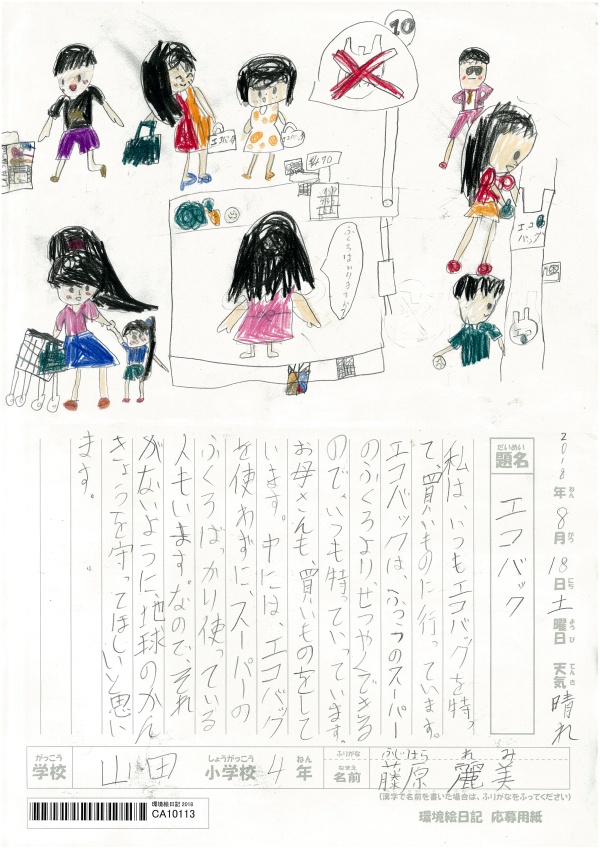 10
エコバック
エコバック
¥470
ふくろはいりますか？
エコ
バック
2018年8月18日土曜日 天気晴れ
ねん がつ にち ようび てんき
だいめい
題名
エコバック
私は、いつもエコバッグを持っ
て、買いものに行っています。
エコバックは、ふつうのスーパー
のふくろより、せつやくできる
ので、いつも持っていっています。
お母さんも、買いものをして
います。中には、エコバッグ
を使わずに、スーパーの
ふくろばっかり使っている
人もいます。なので、それ
がないように、地球のかん
きょうを守ってほしいと思い
ます。
がっこう しょうがっこう ねん ふりがな ふじはら れみ
学校 山田 小学校 4年 なまえ 名前 藤原 麗美
(漢字で名前を書いた場合は、ふりがなをふってください)
環境絵日記 2018
CA10113
環境絵日記 応募用紙